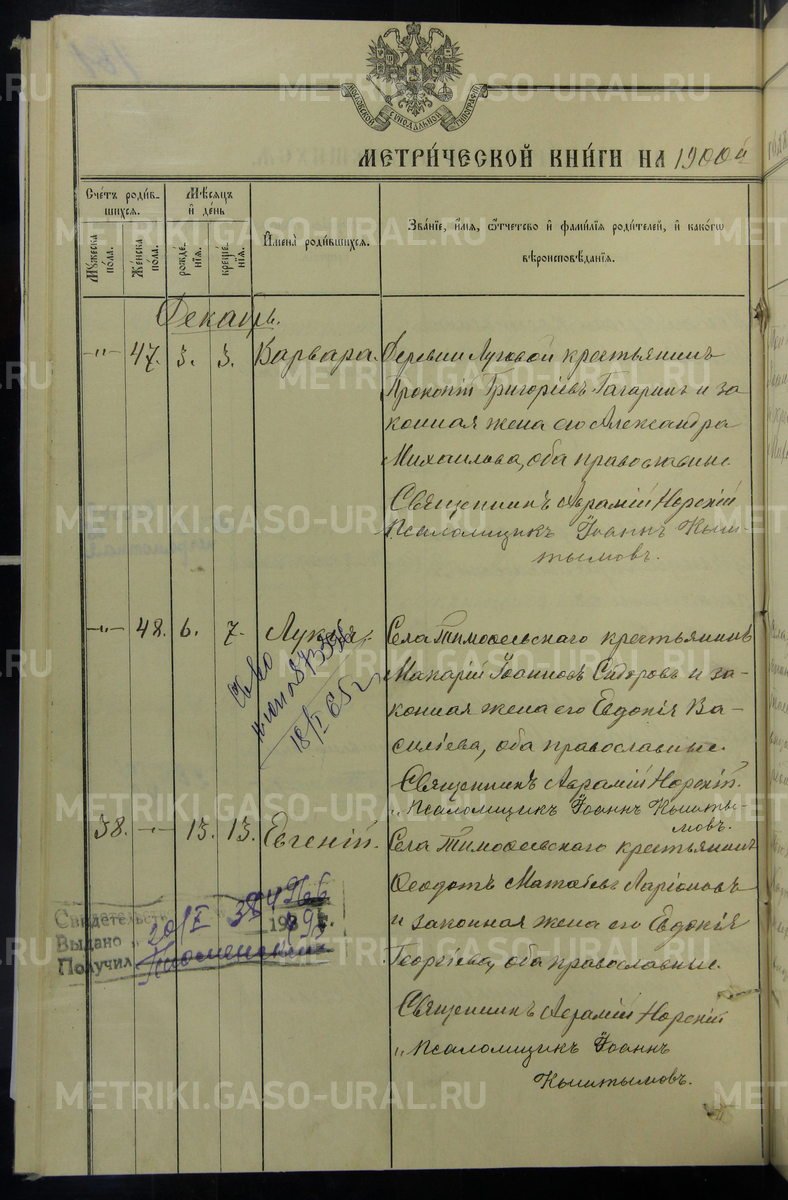 МЕТРИ́ЧЕСКОЙ КНИ́ГИ НА 1900й
Сче́тъ роди́в-
шихся.
Му́жеска
по́ла.
Же́нска
по́ла.
Мѣ́сяцъ
и҆ де́нь
рожде́-
нїѧ.
креще́-
нїѧ.
И҆мена̀ роди́вшихся.
Зва́нїе, и҆́мѧ, ѻ҆́тчество и҆ фами́лїѧ роди́телей, и҆ како́гѡ
вѣроисповѣ́данїѧ.
Декабрь.
-"- 47. 3. 3. Варвара. Деревни Луговой крестьянинъ
Прокопій Григоріевъ Гагаринъ и за
конная жена его Александра
Михаилова, оба православные.
Священникъ Аврамій Норскій
Псаломщикъ Іоаннъ Кыш-
тымовъ.
-"- 48. 6. 7. Лукія. Села Тимоѳеевскаго крестьянинъ
Макарій Іоанновъ Сидоровъ и за-
конная жена его Евдокія Ва-
силіева, оба православные.
Священникъ Аврамій Норскій.
„ Псаломщикъ Іоаннъ Кышты-
мовъ.
18/I 65 г
38. -"- 13. 13. Евгеній. Села Тимоѳеевскаго крестьянинъ
Ѳеодотъ Матѳѣевъ Ларіоновъ
и законная жена его Евдокія
Георгіева, оба православные.
Священникъ Аврамій Норскій
„ Псаломщикъ Іоаннъ
Кыштымовъ.
Свидетельств
Выдано
Получил
METRIKI.GASO-URAL.RU